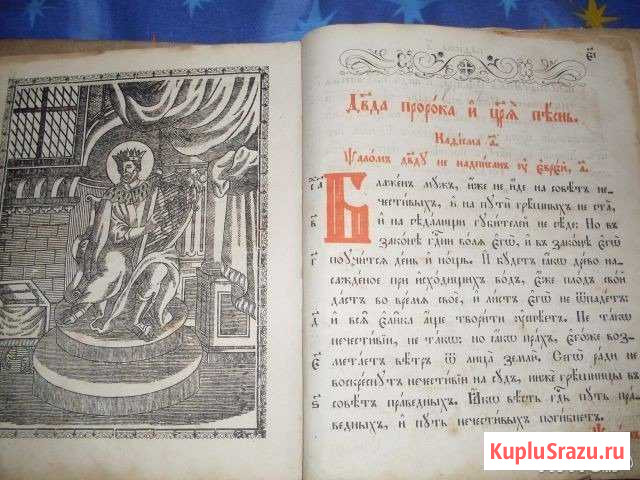 є҃і
Дв҃да прⷪ҇рока и҆ цр҃ѧ̀ пѣ́снь.
Каѳі́сма а҃.
Ѱало́мъ дв҃дꙋ не надпи́санъ ᲂу҆ є҆врє́й, а҃
Бл҃а́женъ мꙋ́жъ, и҆́же не и҆́де на совѣ́тъ не
чести́выхъ, и҆ на пꙋтѝ грѣ́шныхъ не ста̀,
и҆ на сѣда́лищи гꙋби́телей не сѣ́де: Но въ
зако́нѣ гдⷭ҇ни во́лѧ є҆гѡ̀, и҆ въ зако́нѣ є҆гѡ̀
поꙋчи́тсѧ де́нь и҆ но́щь. И҆ бꙋ́детъ ꙗ҆́кѡ дре́во на
сажде́ное при и҆схо́дищихъ во́дъ, є҆́же пло́дъ сво́й
да́стъ во вре́мѧ своѐ, и҆ ли́стъ є҆гѡ̀ не ѿпаде́тъ:
и҆ всѧ̑ є҆ли̑ка а҆́ще твори́тъ ᲂу҆спѣ́етъ. Не та́кѡ
нечести́вїи, не та́кѡ: но ꙗ҆́кѡ пра́хъ, є҆гѡ́же воз
мета́етъ вѣ́тръ ѿ лица̀ землѝ. Сегѡ̀ ра́ди не
воскре́снꙋтъ нечести́вїи на сꙋ́дъ, нижѐ грѣ́шницы въ
совѣ́тъ пра́ведныхъ. Ꙗ҆́кѡ вѣ́сть гдⷭ҇ь пꙋ́ть пра
ведныхъ, и҆ пꙋ́ть нечести́выхъ поги́бнетъ.
KupluSrazu.ru